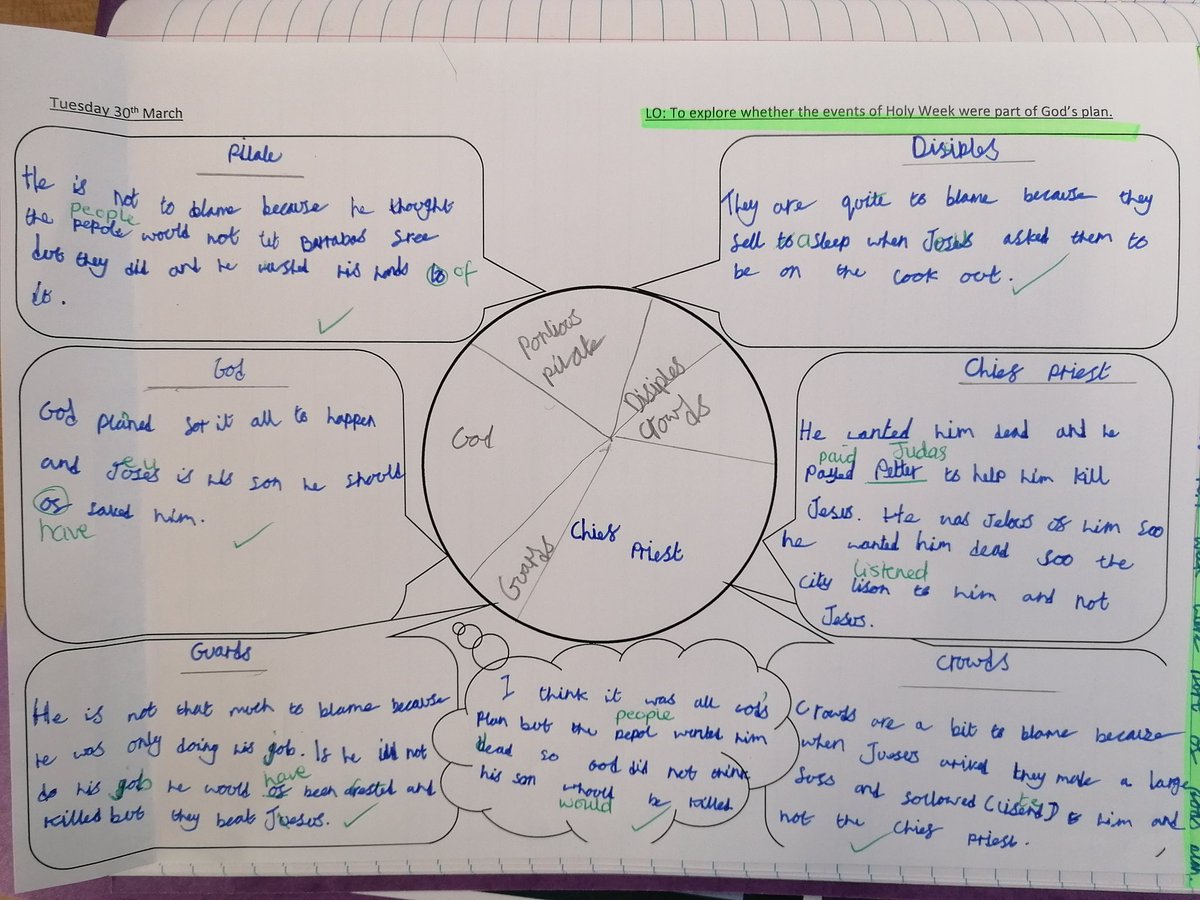 Tuesday 30th March
LO: To explore whether the events of Holy Week were part of God's plan.
Pilate
He is not to blame because he thought
people
the pepole would not let Barrabas free
but they did and he washed his hands to of
it.
Disiples
They are quite to blame because they
fell to asleep when Jesus asked them to
be on the look out.
God
God planed for it all to happen
and Jesus is his son he should
of saved him.
have
Chief Priest
He wanted him dead and he
paid Judas
payed Petter to help him kill
Jesus. He was Jelous of him soo
he wanted him dead soo the
listened
city lison to him and not
Jesus.
Pontious
pilate
Disiples
crowds
God
Guards
Chief
Priest
Guards
He is not that much to blame because
he was only doing his job. If he did not
have
do his job he would of been arested and
killed but they beat Jesus.
I think it was all God's
people
Plan but the pepol wanted him
dead so God did not think
his son whould be killed
would
Crowds
Crowds are a bit to blame because
when Jueses arived they made a large
fuss and followed to him and
not the Chief Priest.